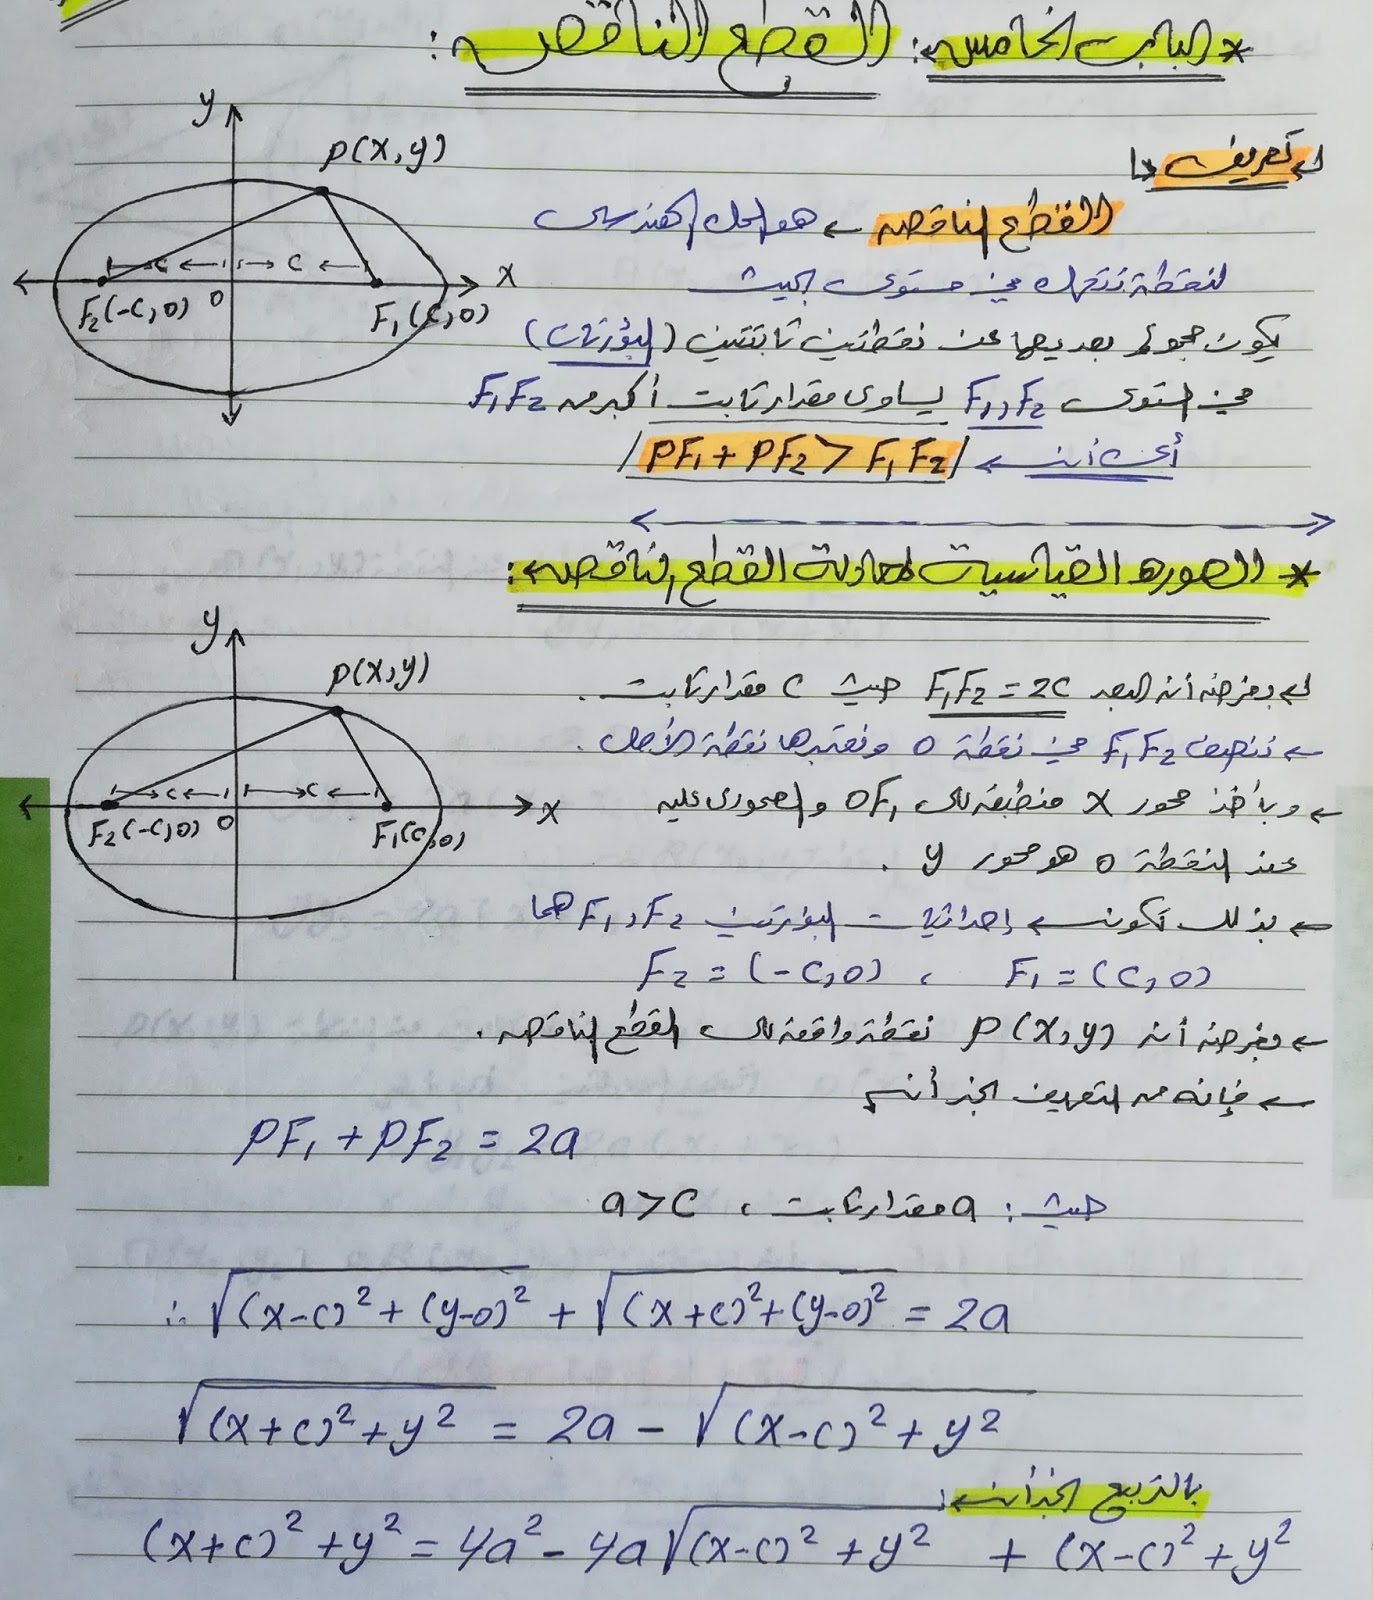 * الباب الخامس: القطع الناقص:
تعريف
القطع الناقص ← هو المحل الهندسى
لنقطة تتحرك فى مستوى بحيث
يكون مجموع بعديها عن نقطتين ثابتتين (البؤرتان)
فى المستوى F₁, F₂ يساوى مقدار ثابت أكبر من F₁F₂
أى أن ← PF₁ + PF₂ > F₁F₂
y
P(x,y)
c c
x
F₂(-c,0) 0 F₁(c,0)
* الصوره القياسية لمعادلة القطع الناقص:
بفرض أن البعد F₁F₂ = 2c حيث c مقدار ثابت.
← ننصف F₁F₂ فى نقطة 0 ونعتبرها نقطة الأصل.
← وبأخذ محور x منطبق على 0F₁ والعمودى عليه
عند النقطة 0 هو محور y.
← بذلك تكون ← إحداثيات البؤرتين F₁, F₂ هما
F₂ = (-c, 0) ، F₁ = (c, 0)
← بفرض أن P(x,y) نقطة واقعة على القطع الناقص.
← فإنه من التعريف نجد أن
y
P(x,y)
c c
x
F₂(-c,0) 0 F₁(c,0)
PF₁ + PF₂ = 2a
حيث: a مقدار ثابت ، a>c
∴ √(x-c)² + (y-0)² + √(x+c)² + (y-0)² = 2a
√(x+c)² + y² = 2a - √(x-c)² + y²
بالتربيع نجد أن:
(x+c)² + y² = 4a² - 4a√(x-c)² + y² + (x-c)² + y²